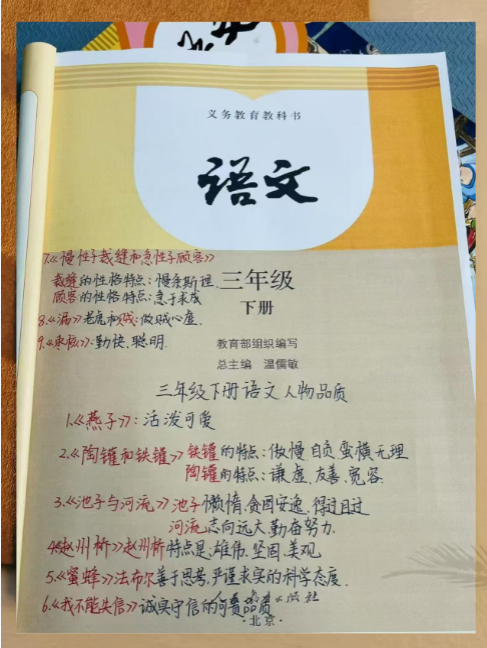 义务教育教科书
语文
7.《慢性子裁缝和急性子顾客》
裁缝的性格特点:慢条斯理.
顾客的性格特点:急于求成
三年级
下册
8.《漏》老虎和贼:做贼心虚.
9.《枣核》:勤快、聪明.
教育部组织编写
总主编 温儒敏
三年级下册语文人物品质
1.《燕子》:活泼可爱
2.《陶罐和铁罐》铁罐的特点:傲慢自负 蛮横无理
陶罐的特点:谦虚、友善、宽容.
3.《池子与河流》池子懒惰、贪图安逸、得过且过
河流 志向远大 勤奋努力.
4.《赵州桥》赵州桥特点是:雄伟、坚固、美观
5.《蜜蜂》法布尔善于思考,严谨求实的科学态度.
6.《我不能失信》诚实守信的可贵品质
·北京·